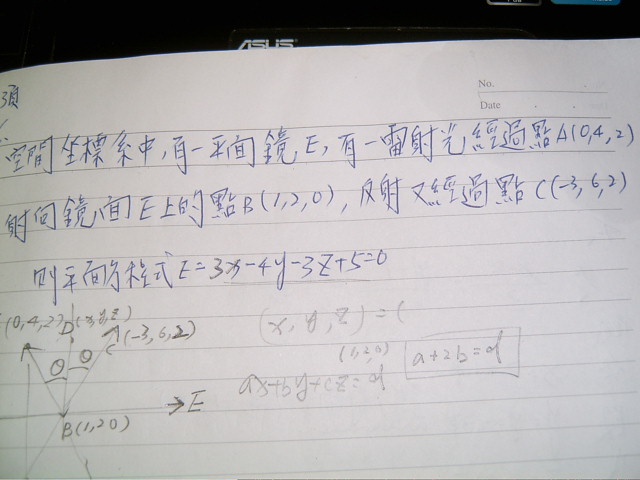 ASUS
No.
Date
空間坐標系中,有一平面鏡E,有一雷射光經過點A(0,4,2)
射向鏡面E上的點B(1,2,0),反射又經過點C(-3,6,2)
則平面方程式E=3x-4y-3z+5=0
(0,4,2) D(x,y,z)
(-3,6,2)
C
θ θ
(x,y,z)=(
(1,2,0)
a+2b=d
ax+by+cz=d
E
B(1,2,0)